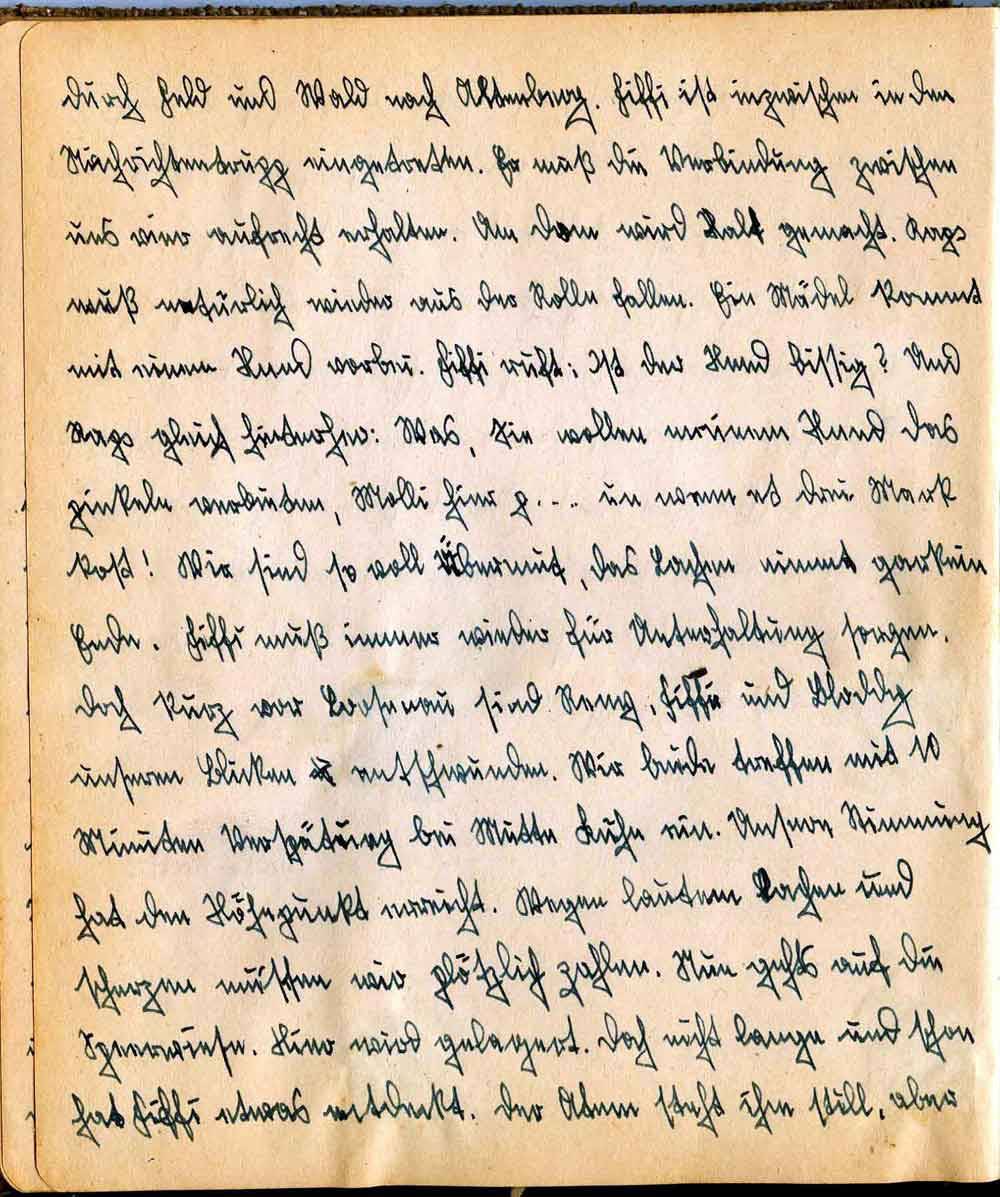 durch Feld und Wald nach Altenberg. Fiffi ist inzwischen in den
Nachrichtentrupp eingetreten. Er muß die Verbindung zwischen
uns vier aufrecht erhalten. Am Dom wird Halt gemacht. Raps
muß natürlich wieder aus der Rolle fallen. Ein Mädel kommt
mit einem Hund vorbei. Fiffi ruft: Ist der Hund bissig? Und
Raps gleich hinterher: Was, Sie wollen meinem Hund das
pinkeln verbieten, Molli hier p.... un wenn et drei Mark
kost! Wir sind so voll Übermut, das Lachen nimmt garkein
Ende. Fiffi muß immer wieder für Unterhaltung sorgen.
Doch kurz vor sind Fiffi und Bloddy
unseren Blicken entschwunden. Wir beide treffen mit 10
Minuten Verspätung bei Mutte Kuhn ein. Unsere Stimmung
hat den Höhepunkt erreicht. Wegen lautem Lachen und
scherzen müssen wir plötzlich zahlen. Nun gehts auf die
Hier wird gelagert. Doch nicht lange und schon
hat Fiffi etwas entdeckt. Der Atem steht ihm still, aber